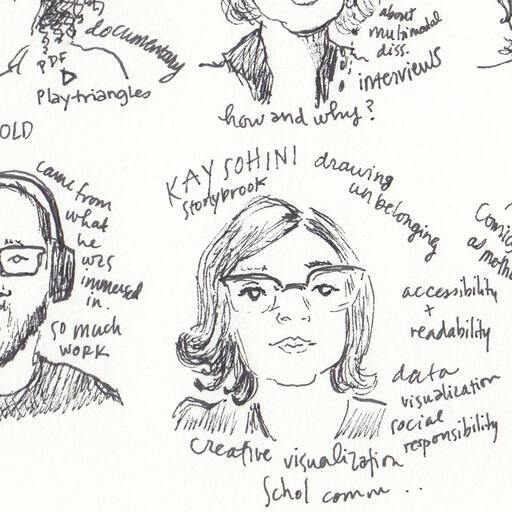 documentary
PDF
Play triangles
about
multimodal
diss.
interviews
how and why?
OLD
came from
what
he
was
immersed
in.
so much
WORK
KAY SOHINI
Stonybrook
drawing
unbelonging
Comics
as metho
accessibility
+
readability
data
visualization
social
responsibility
Creative visualization
Schol comm ..